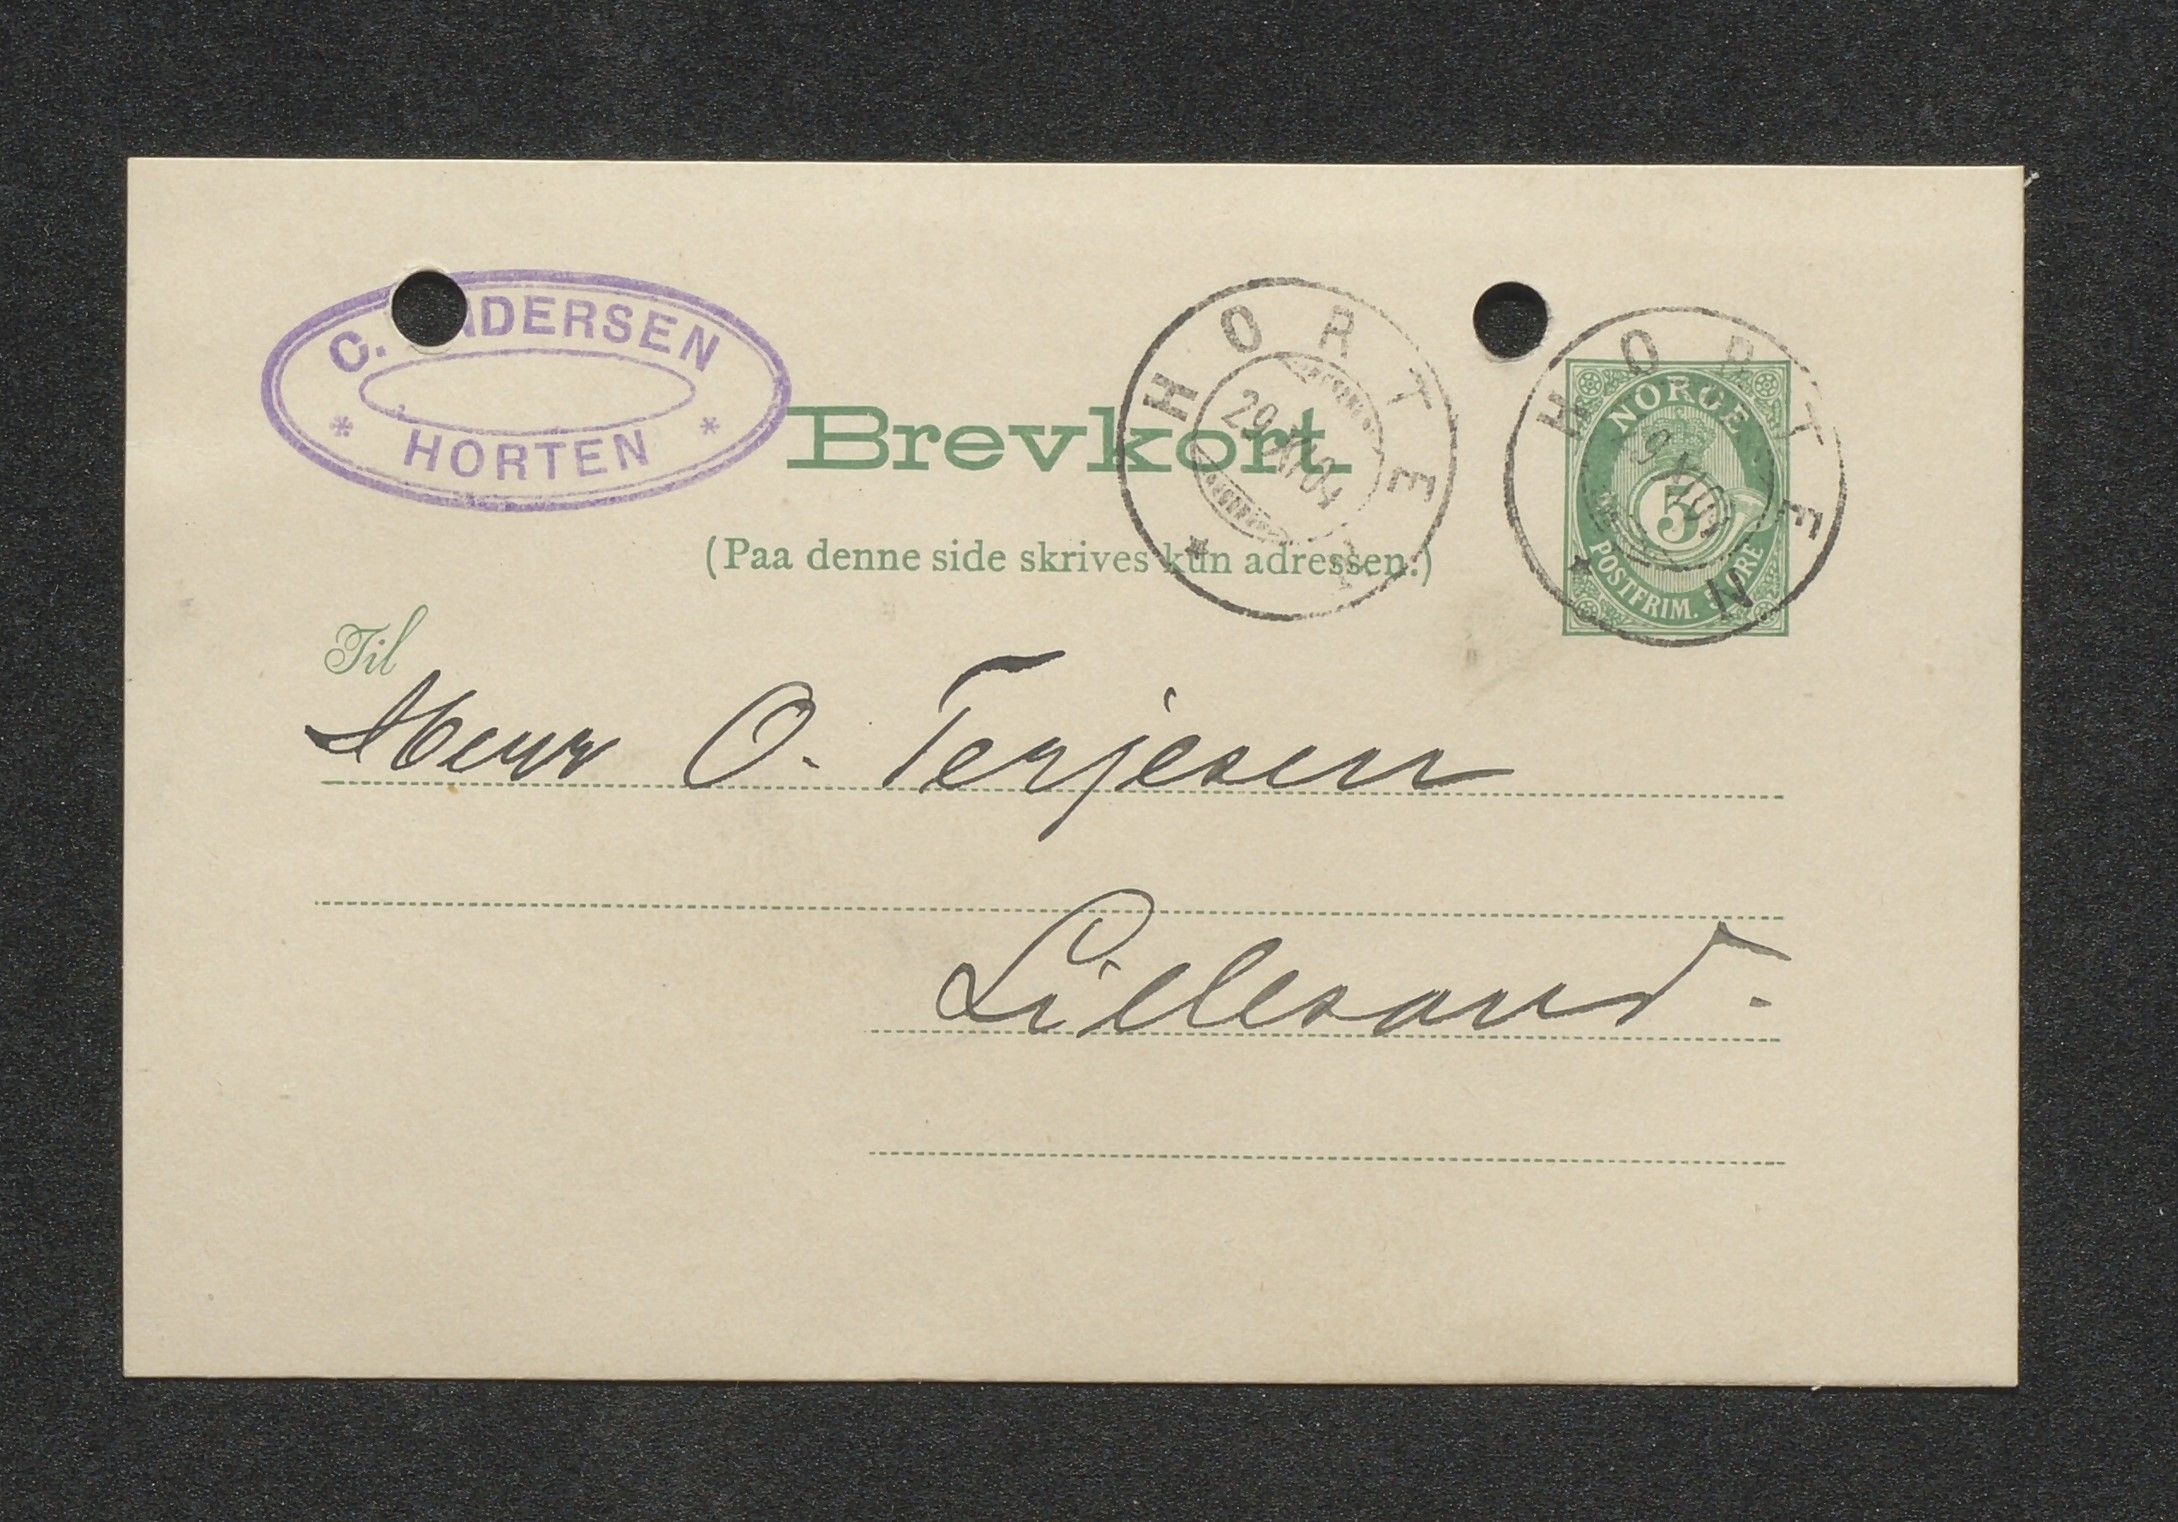 C. ANDERSEN
* HORTEN *
Brevkort.
(Paa denne side skrives kun adressen.)
HORTEN
29 XI 04
HORTEN
NORGE
5
POSTFRIM. 5 ØRE
Til
Herr O. Terjesen
Lillesand.